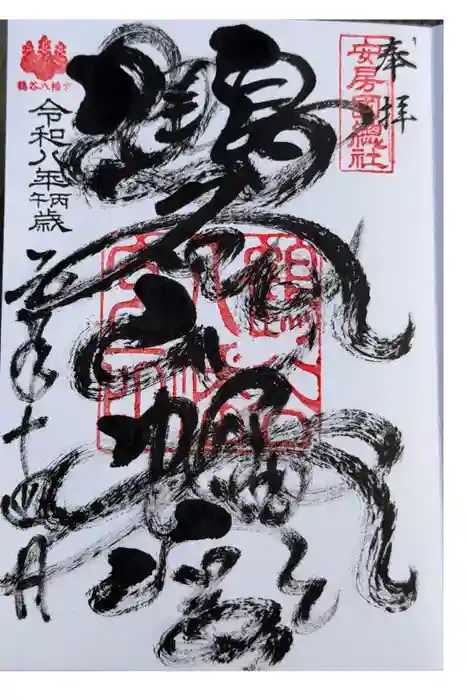 奉拝
安房國總社
鶴谷八幡宮
鶴谷八幡宮
令和八年丙午歳
十四日